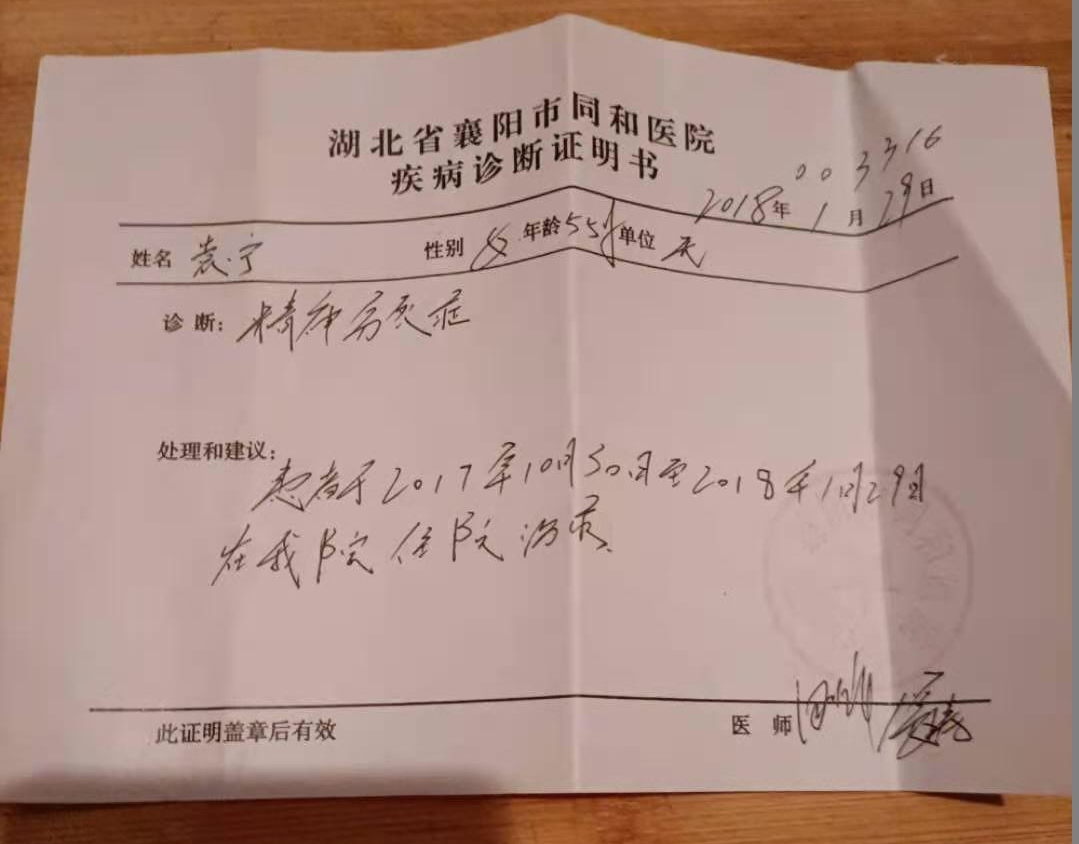 湖北省襄阳市同和医院
疾病诊断证明书
003316
2018年1月29日
姓名 袁宁 性别 女 年龄 55岁 单位 无
诊断: 精神分裂症
处理和建议:
患者于2017年10月30日至2018年1月29日
在我院住院治疗.
此证明盖章后有效
医师